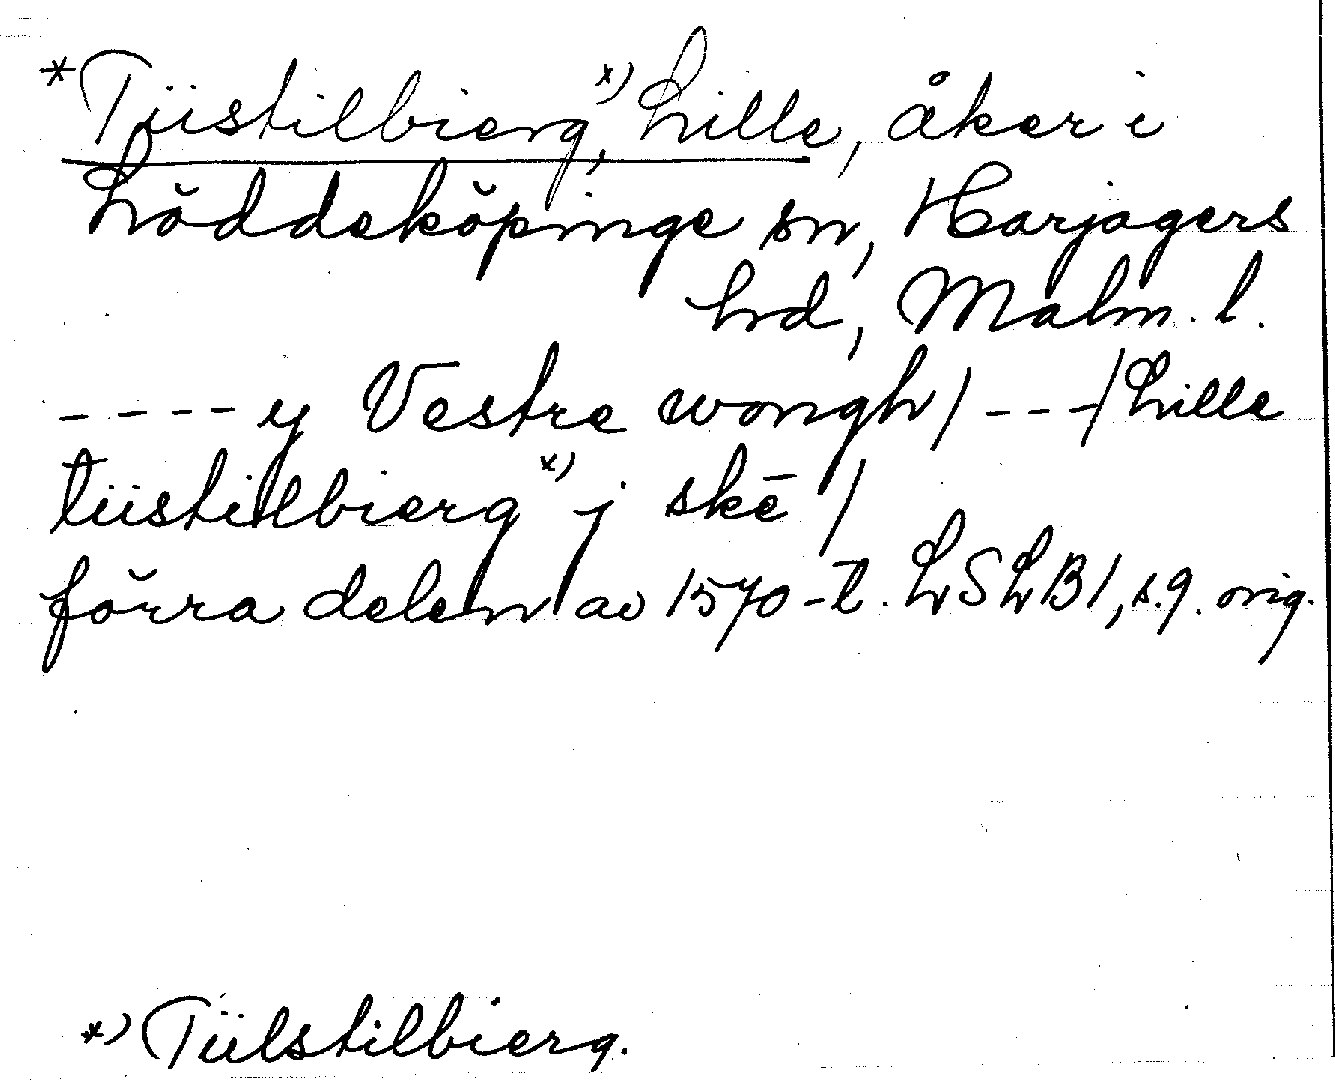 *Tiistilbierg, *) Lille, åker i
Löddeköpinge sn, Harjagers
hd, Malm. l.
- - - - y Vestre wongh/ - - -/Lille
tiistilbierg *) j skē /
förra delen av 1570-t. LSLB1, s.9. orig.
*) Tiilstilbierg.